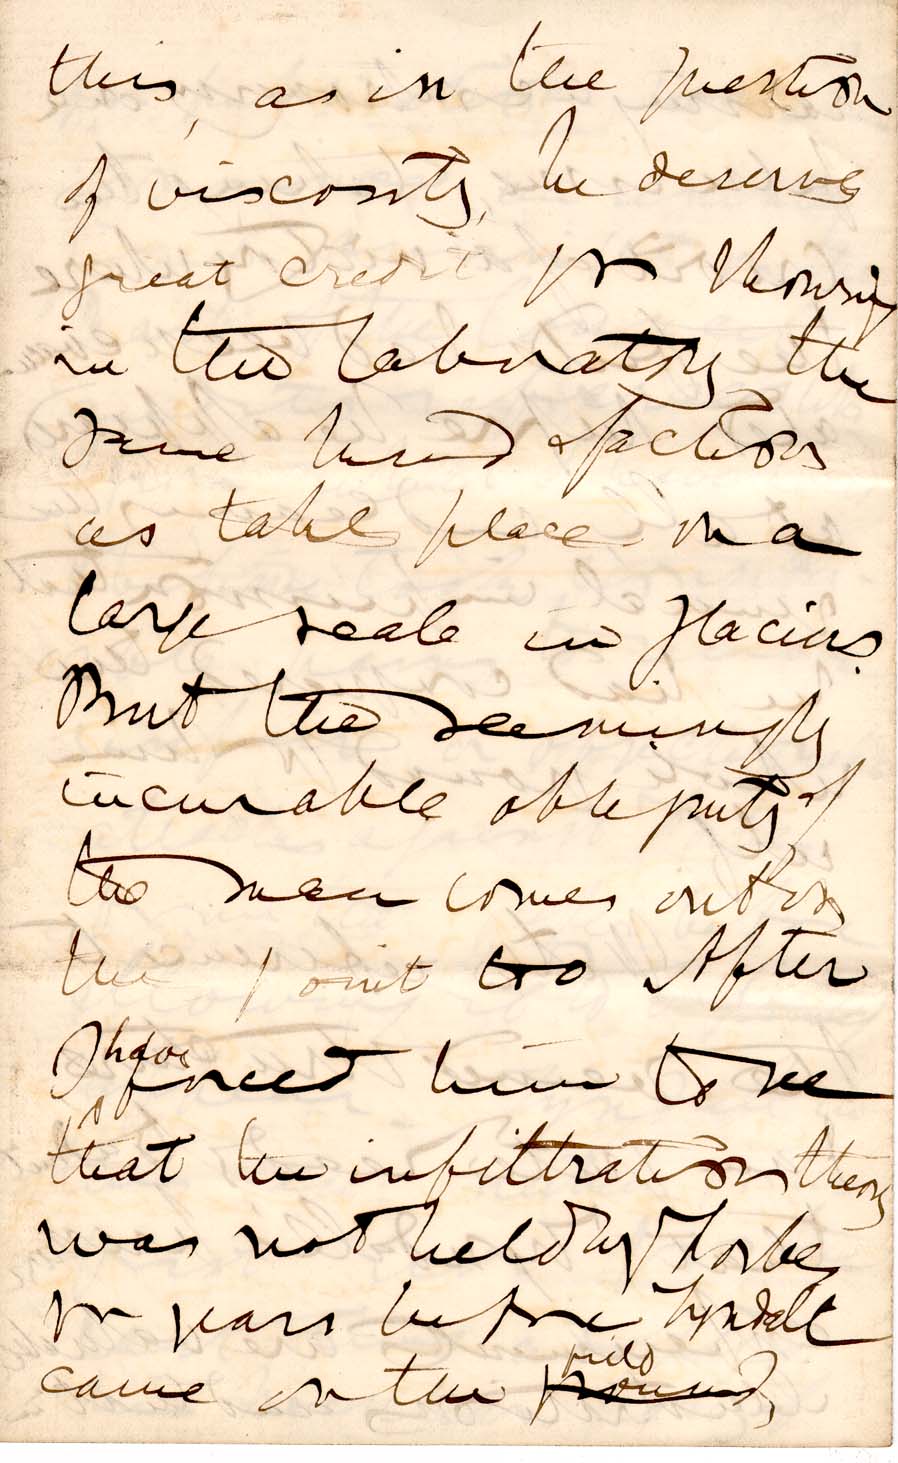 this, as in the question
of viscosity, he deserves
great credit for showing
in the laboratory the
same kind of actions
as take place on a
large scale in glaciers.
But the seemingly
incurable obliquity of
the man comes out on
the point too After
I have forced him to see
that the infiltration theory
was not held by Forbes
for years before Tyndall
came on the ground, field